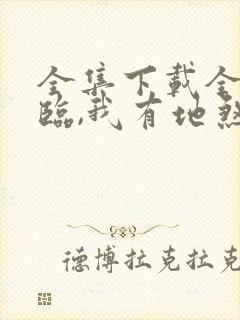 全集下載全
臨,我有地煞
德博拉克拉克